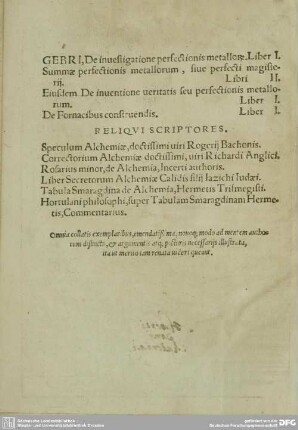 GEBRI, De inuestigatione perfectionis metallorũ. Liber I.
Summæ perfectionis metallorum, siue perfecti magiste-
rij. Libri II.
Eiusdem De inuentione ueritatis seu perfectionis metallo-
rum. Liber I.
De Fornacibus construendis. Liber I.
RELIQVI SCRIPTORES.
Speculum Alchemiæ, doctissimi uiri Rogerij Bachonis.
Correctorium Alchemiæ doctissimi, uiri Richardi Anglici.
Rosarius minor, de Alchemia, Incerti authoris.
Liber Secretorum Alchemiæ Calidis filij Iazichi Iudæi.
Tabula Smaragdina de Alchemia, Hermetis Trismegisti.
Hortulani philosophi, super Tabulam Smaragdinam Herme-
tis, Commentarius.
Omnia collatis exemplaribus, emendatissima, nonq; modo ad mentem autho-
rum distincta, & argumentis atq; picturis necessarijs illustrata,
ita ut merito iam renata uideri queant.